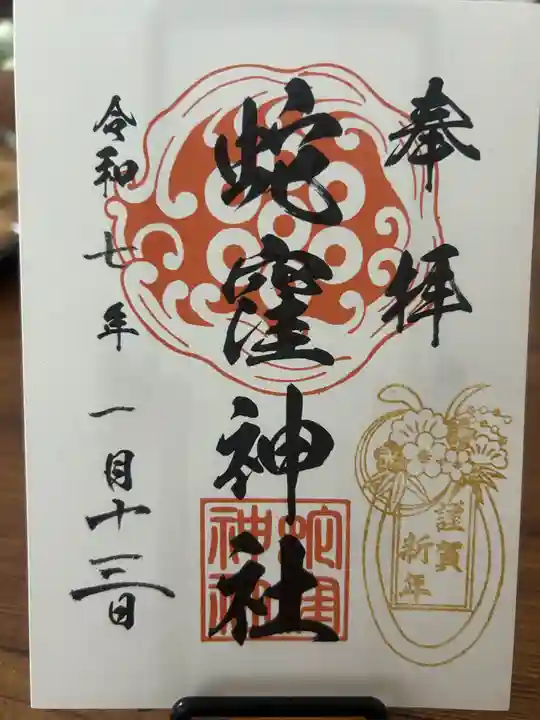 奉拝
蛇窪神社
令和七年一月十三日
謹賀
新年
蛇窪
神社